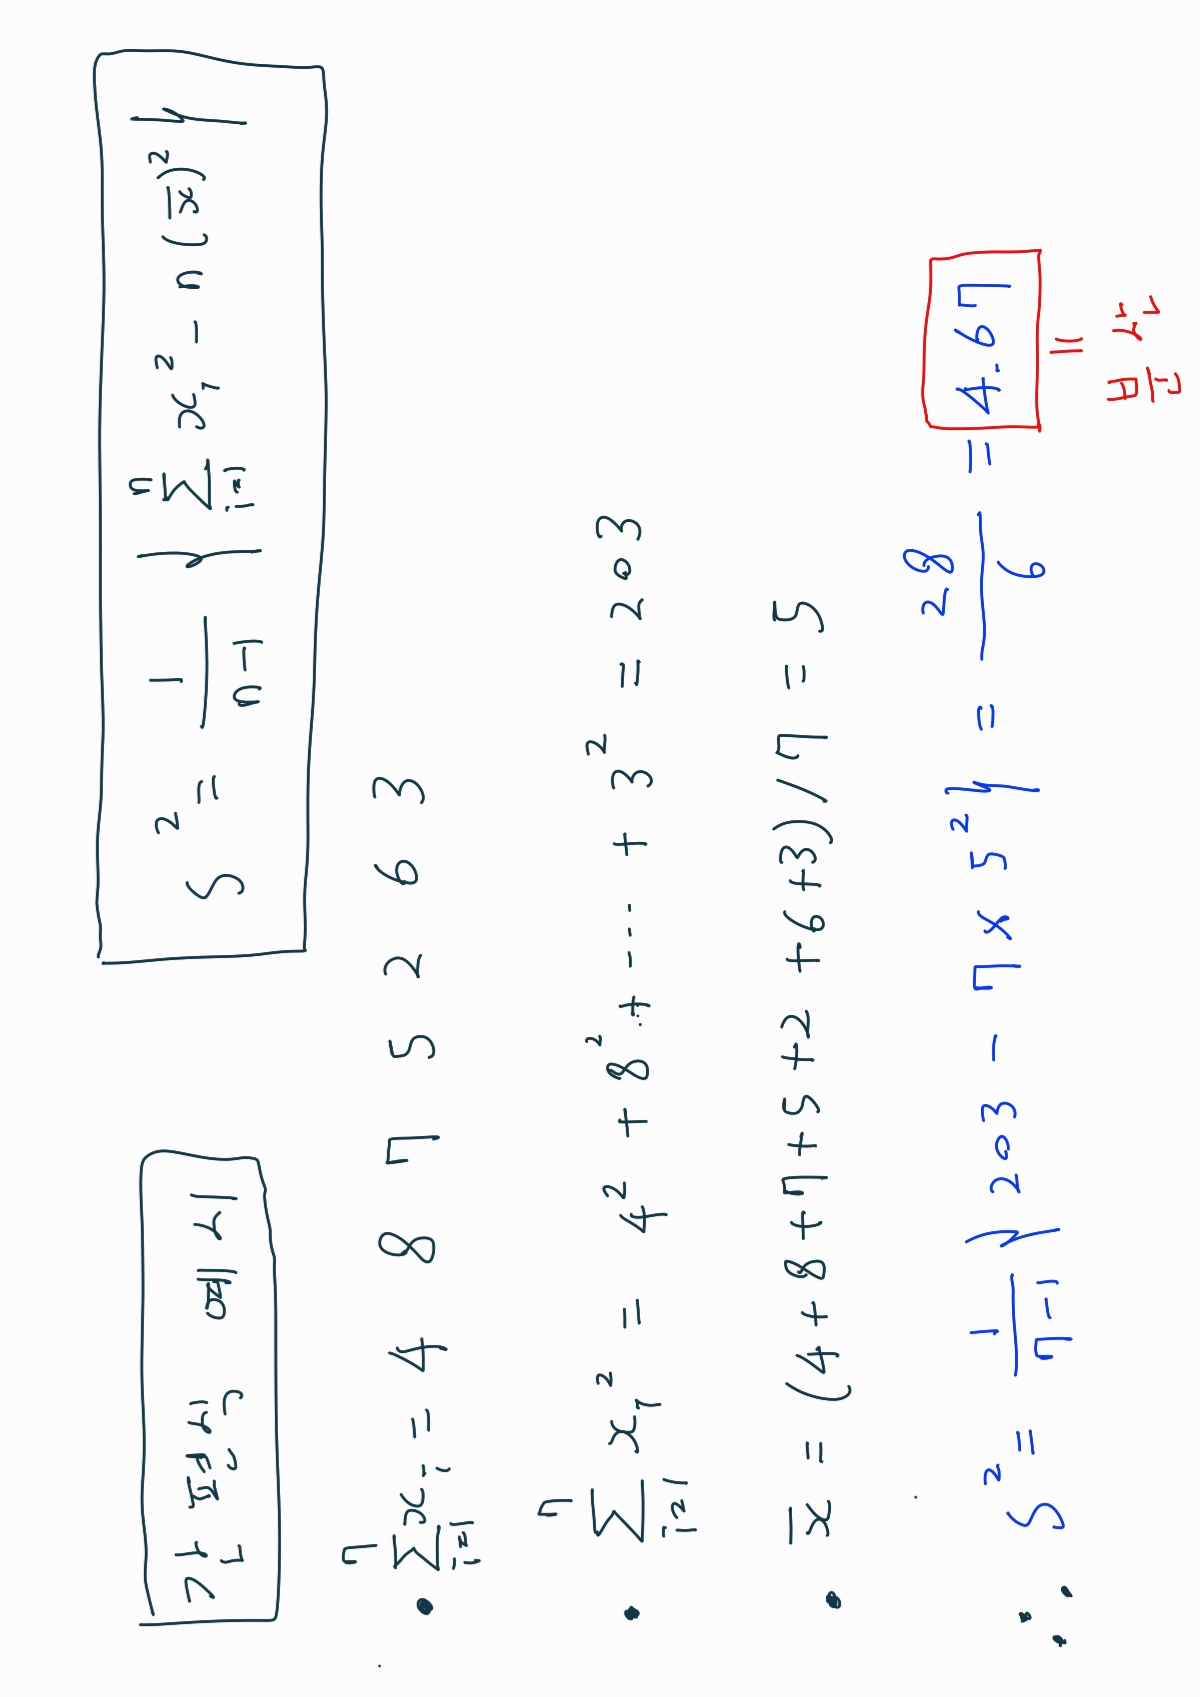 간편산 예시
S² = 1/(n-1) { ∑_{i=1}^{n} x_i² - n(x̄)² }
• ∑_{i=1}^{7} x_i = 4 8 7 5 2 6 3
• ∑_{i=1}^{7} x_i² = 4² + 8² + ---- + 3² = 203
• x̄ = (4+8+7+5+2+6+3)/7 = 5
∴ S² = 1/(7-1) { 203 - 7 × 5² } = 28/6 = 4.67
=
분산